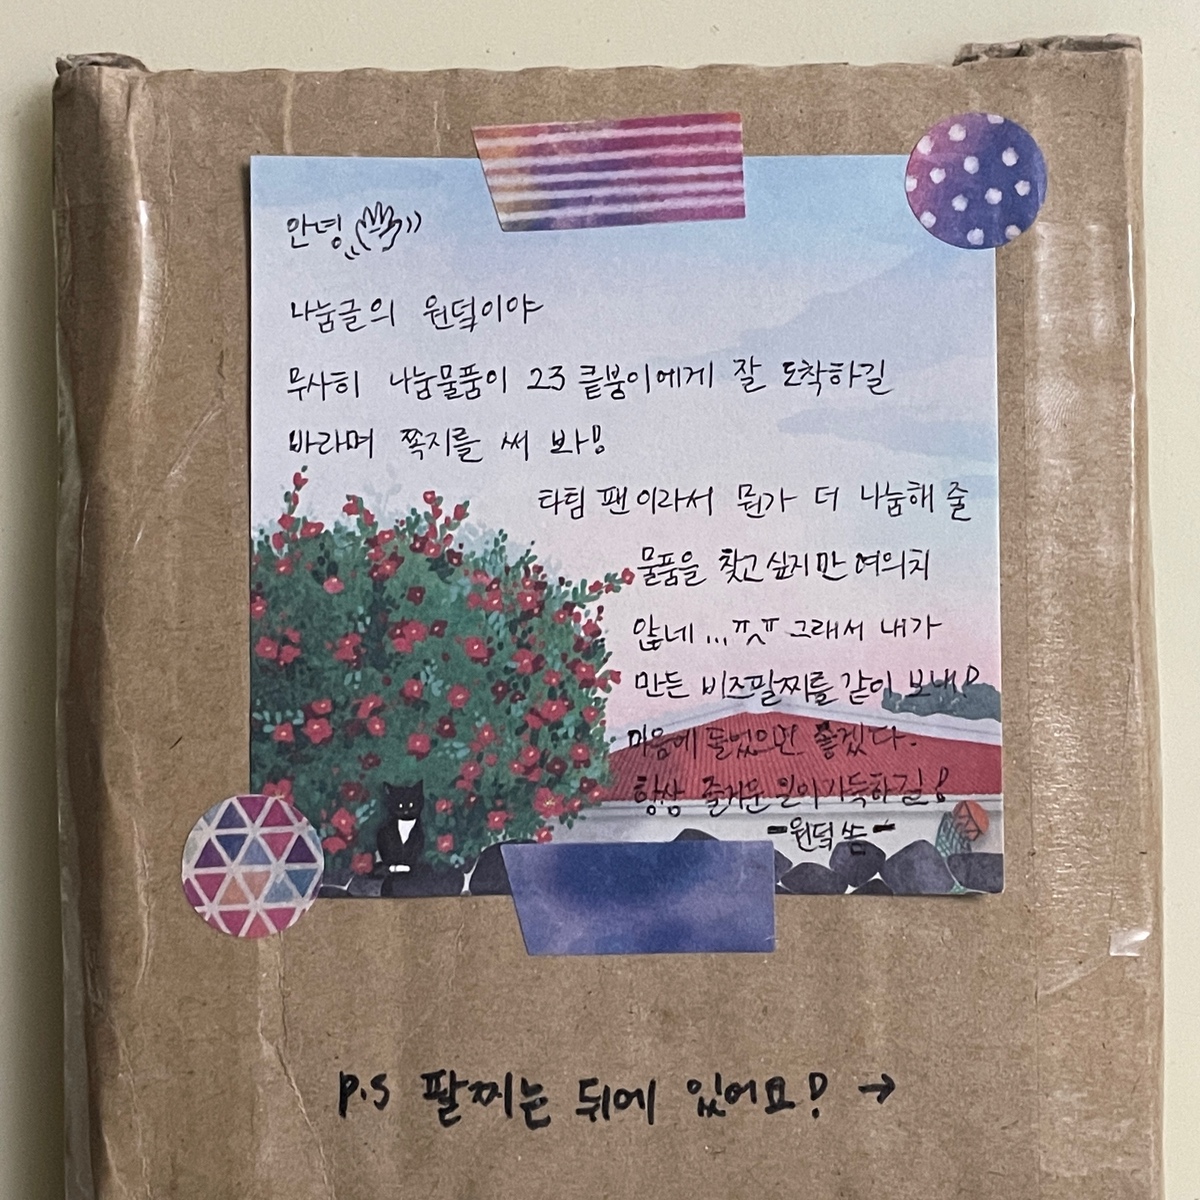 안녕
나눔글의 원덕이야
무사히 나눔물품이 23 큩붕이에게 잘 도착하길
바라며 쪽지를 써 봐!
타팀 팬이라서 뭔가 더 나눔해 줄
물품을 찾고싶지만 여의치
않네...ㅠㅅㅠ 그래서 내가
만든 비즈팔찌를 같이 보내!
마음에 들었으면 좋겠다.
항상 즐거운 일이 가득하길!
-원덕 씀-
P.S 팔찌는 뒤에 있어요! →